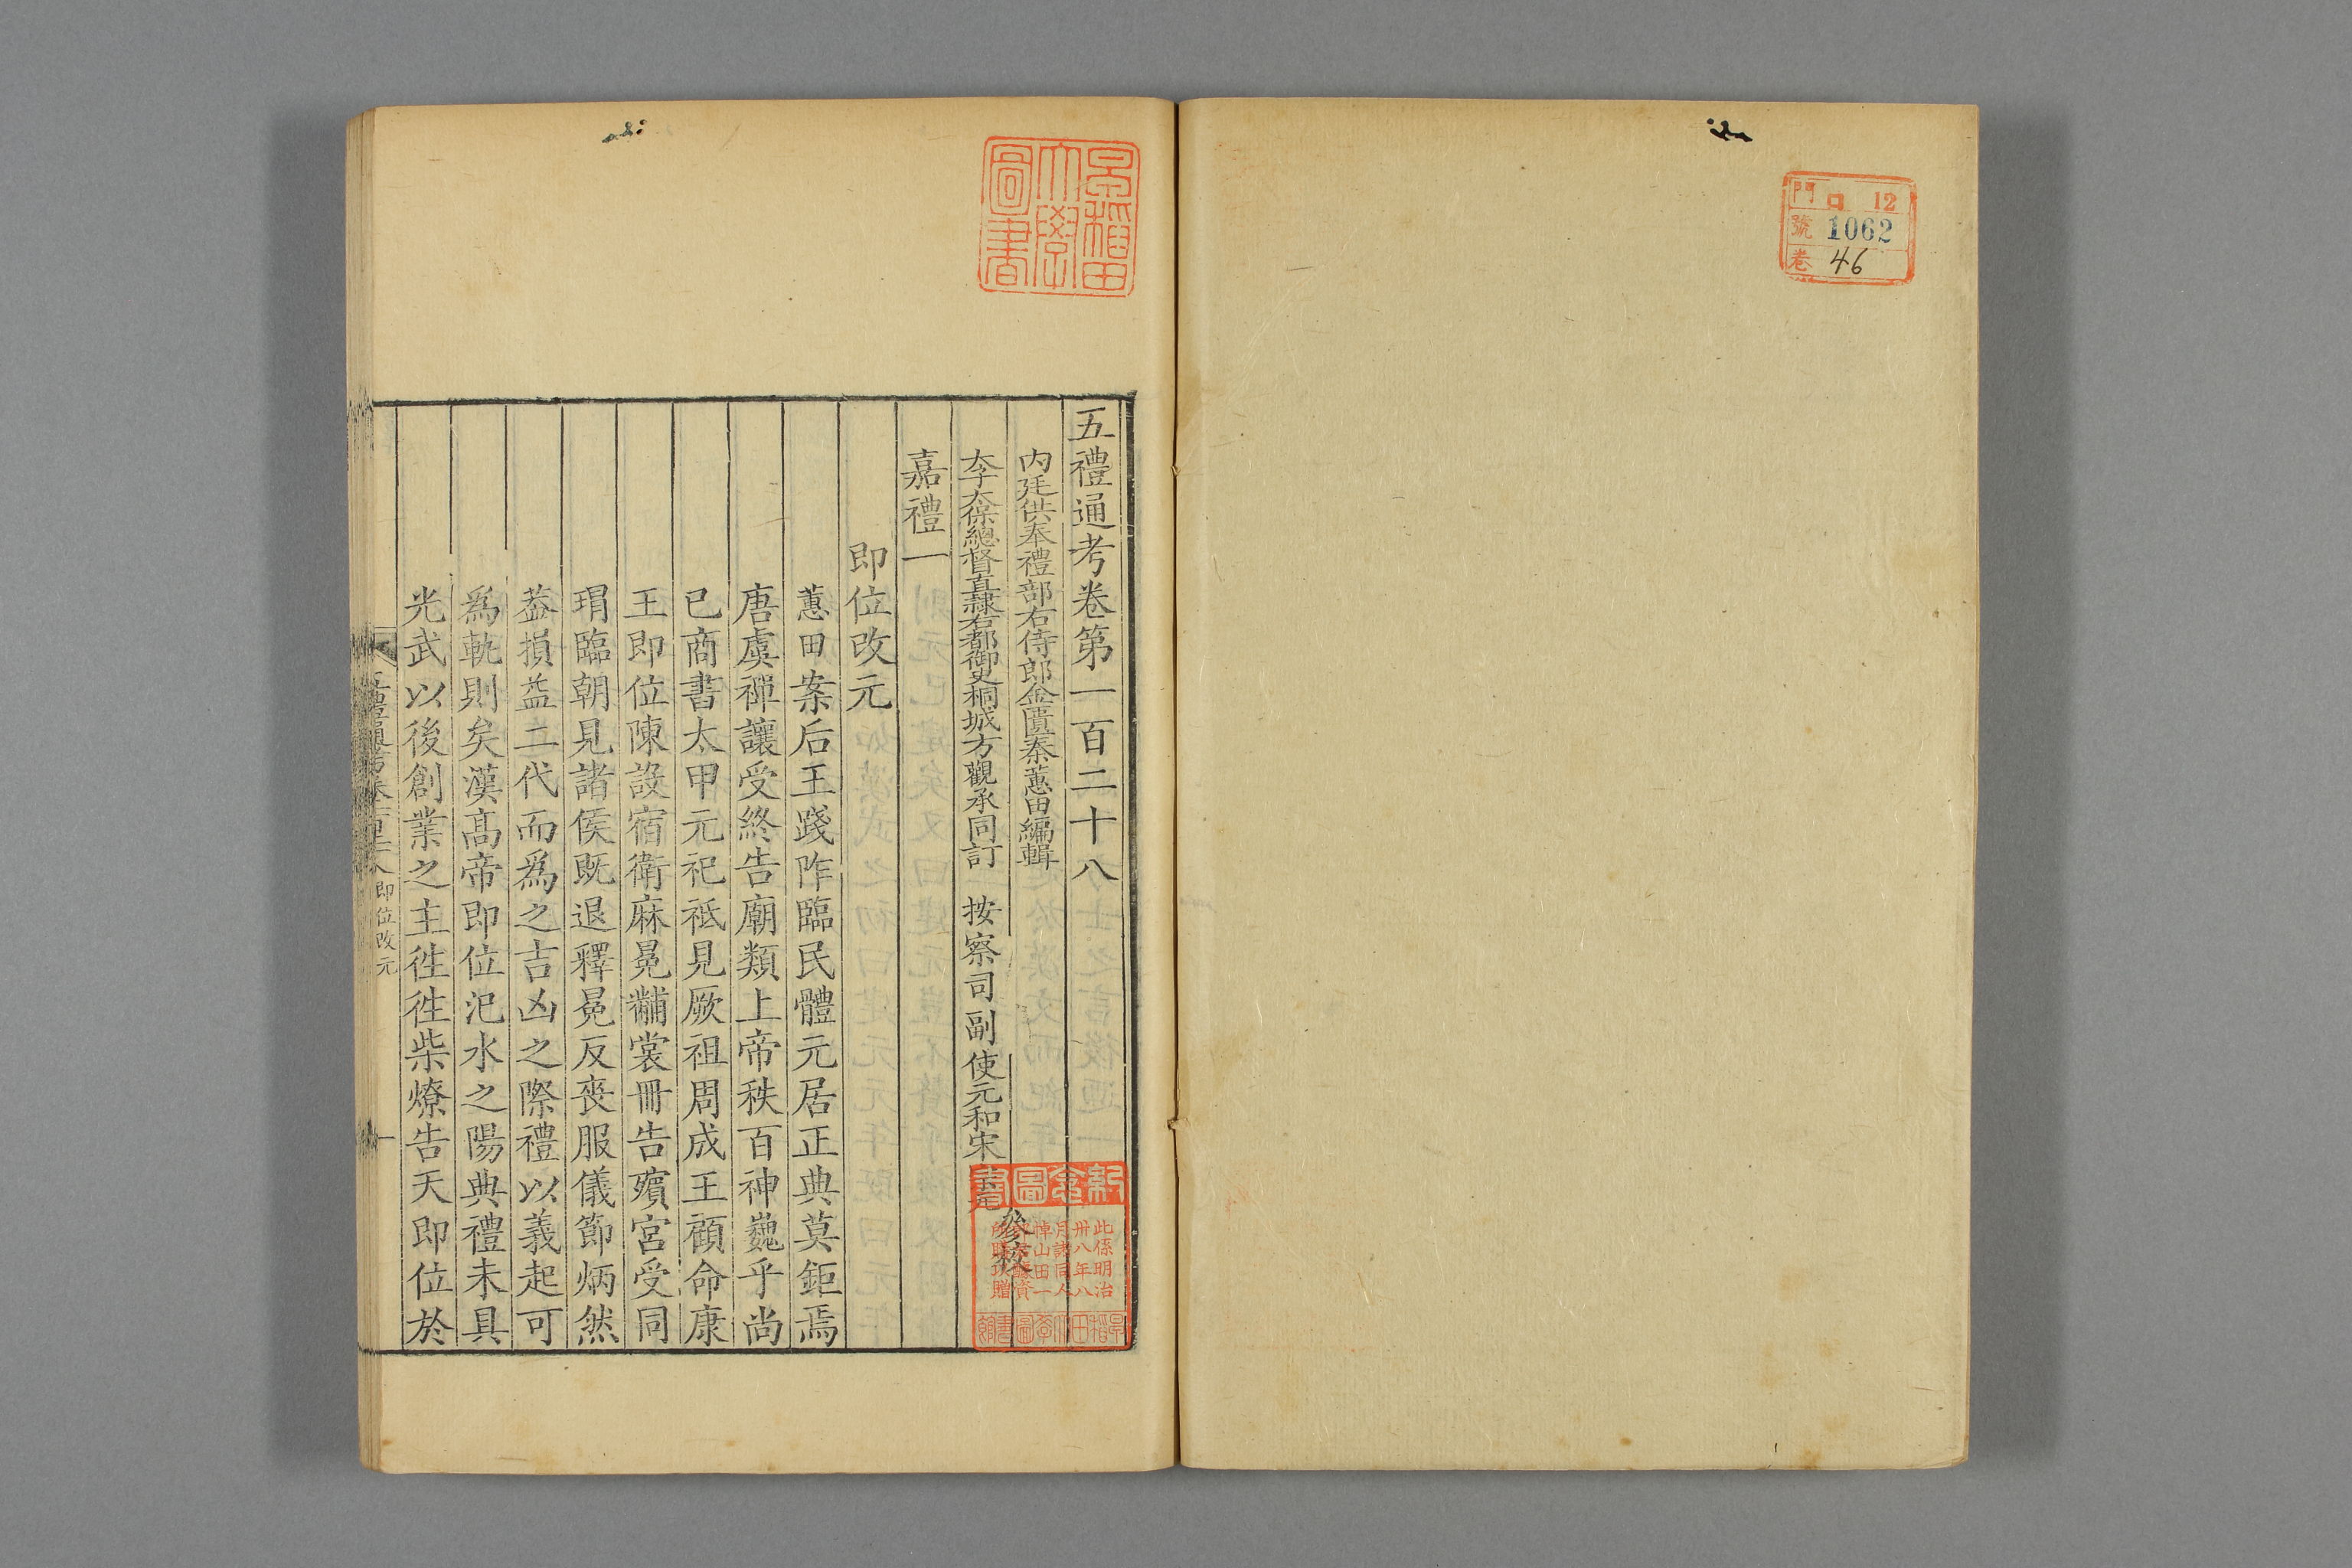 門 口 12
號 1062
卷 46
早稲田
大學
圖書
五禮通考卷第一百二十八
内廷供奉禮部右侍郎金匱秦蕙田編輯
太子太保總督直隸右都御史桐城方觀承同訂 按察司副使元和宋宗元參校
嘉禮一
即位改元
蕙田案后王踐阼臨民體元居正典莫鉅焉
唐虞禪讓受終告廟類上帝秩百神巍乎尚
已商書太甲元祀祗見厥祖周成王顧命康
王即位陳設宿衛麻冕黼裳冊告殯宮受同
瑁臨朝見諸侯既退釋冕反喪服儀節炳然
葢損益二代而爲之吉凶之際禮以義起可
爲軌則矣漢髙帝即位汜水之陽典禮未具
光武以後創業之主徃徃柴燎告天即位於
五禮通考卷一百二十八 即位改元 一
此係明治
卅八年八
月諸同人
悼山田一